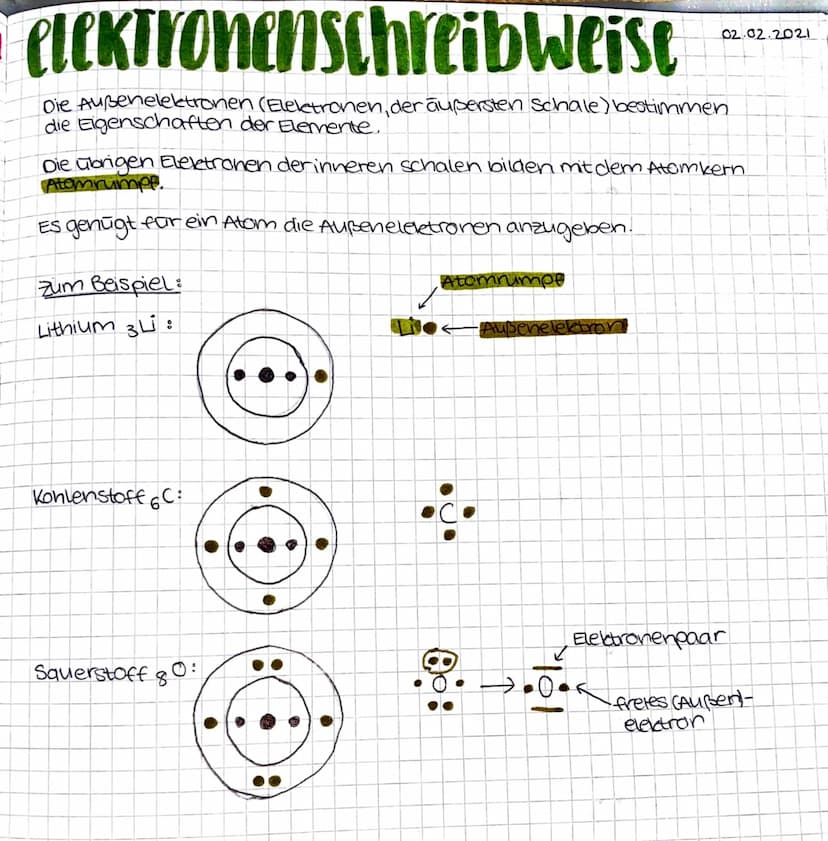 Elektronenschreibweise
02.02.2021
Die Außenelektronen (Elektronen, der äußersten Schale) bestimmen
die Eigenschaften der Elemente.
Die übrigen Elektronen der inneren Schalen bilden mit dem Atomkern
Atomrumpf.
Es genügt für ein Atom die Außenelektronen anzugeben.
Zum Beispiel:
Atomrumpf
Lithium ₃Li:
Li
Außenelektron
Kohlenstoff ₆C:
C
Elektronenpaar
Sauerstoff ₈O:
O → O
freies (Außen)-
elektron